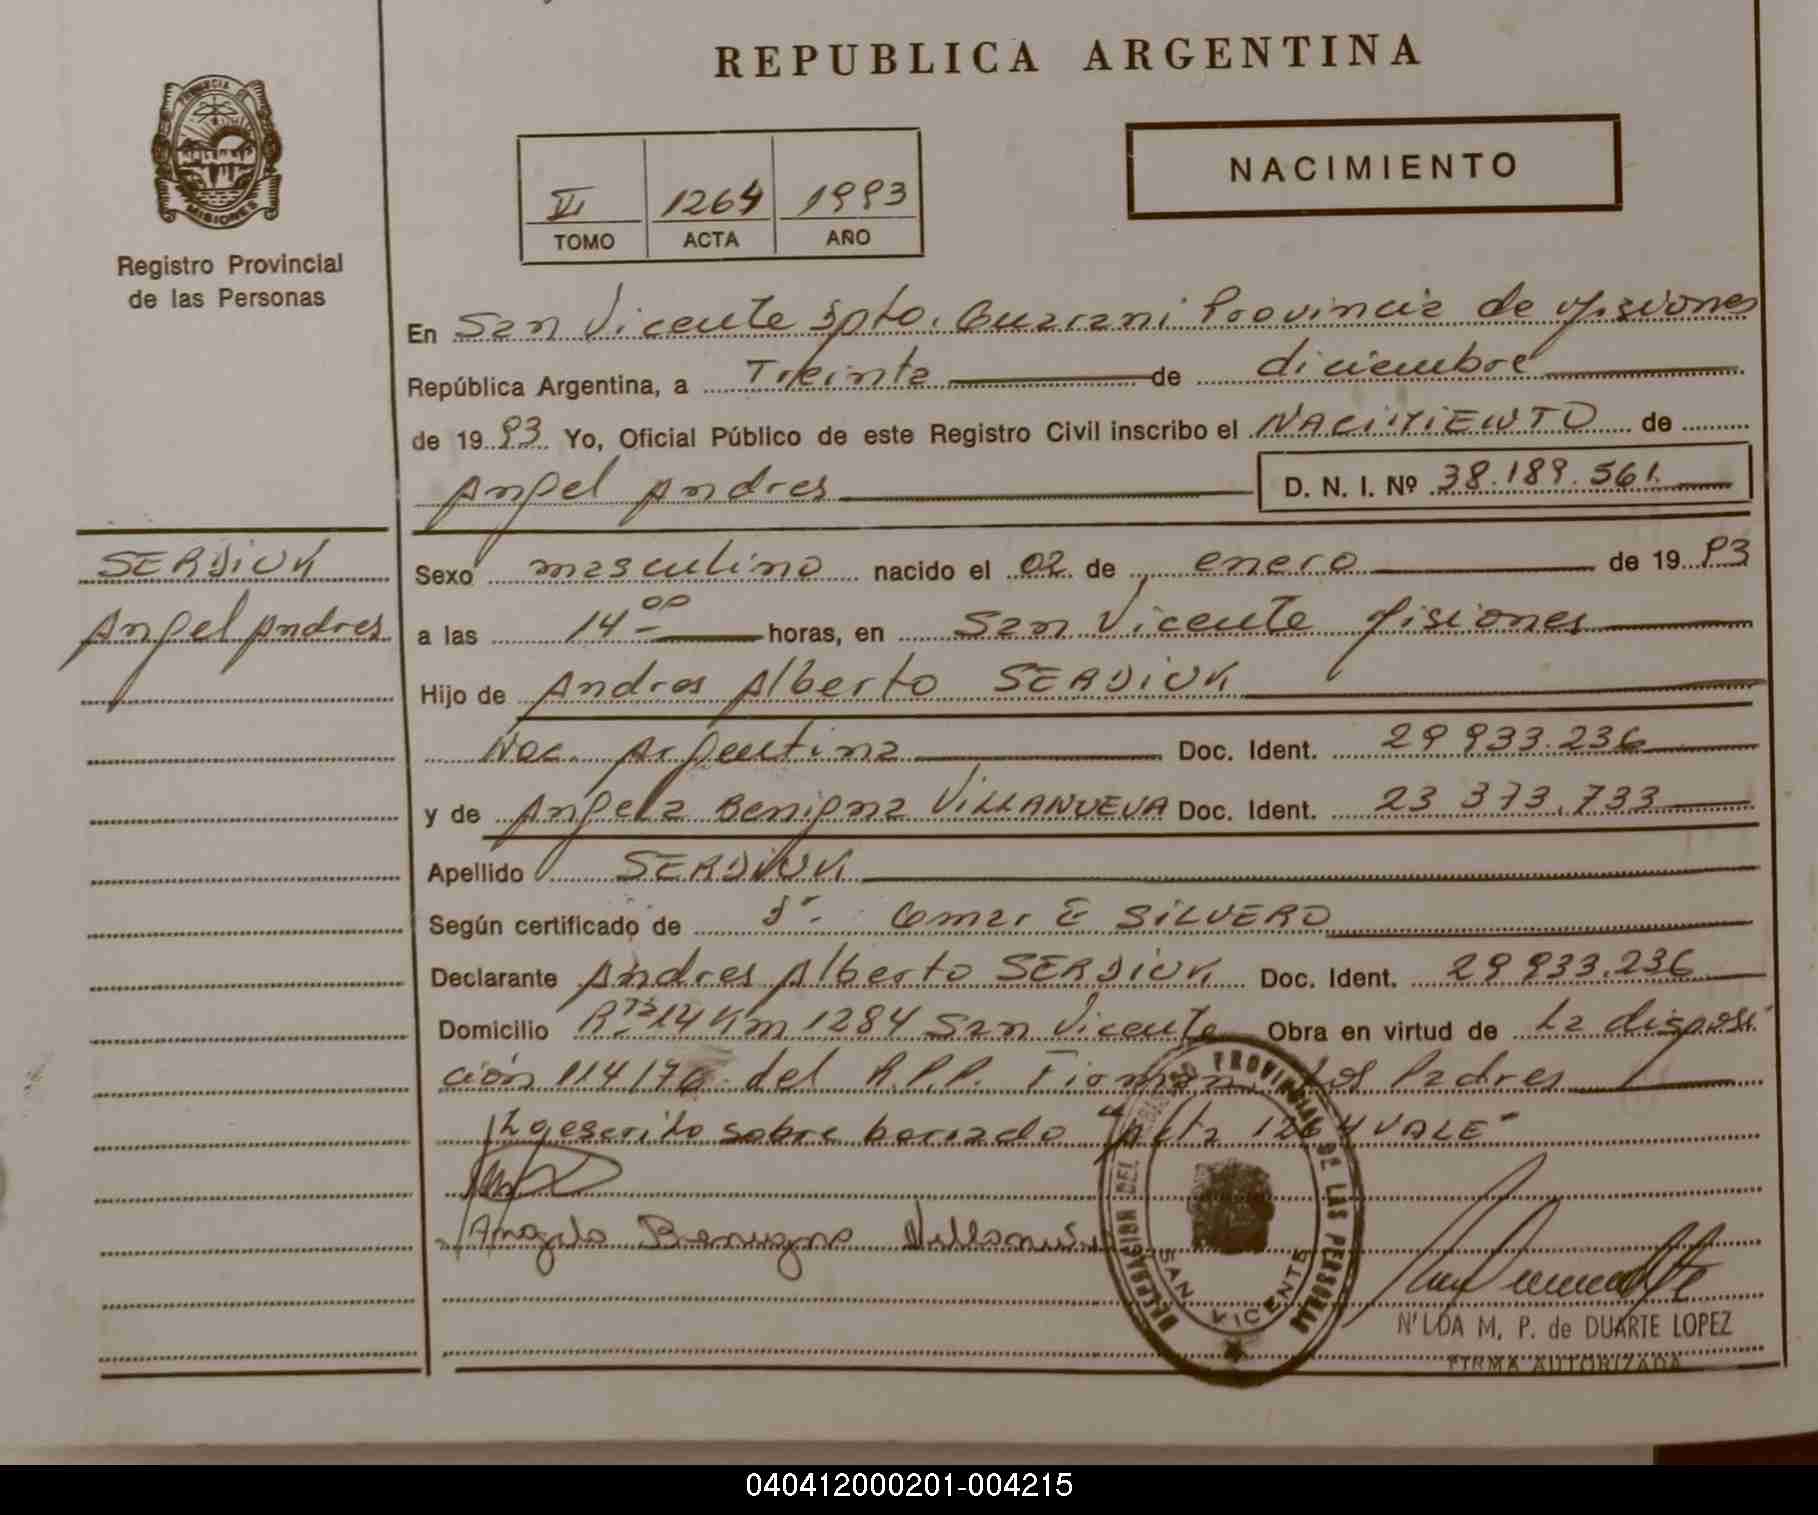 REPUBLICA ARGENTINA
PROVINCIA DE
MISIONES
Registro Provincial
de las Personas
1264 1993
TOMO ACTA AÑO
NACIMIENTO
En San Vicente Dpto. Guarani Provincia de Misiones
República Argentina, a Treinta de diciembre
de 1993 Yo, Oficial Público de este Registro Civil inscribo el NACIMIENTO de
Angel Andres D. N. I. Nº 38.189.561.
SERDIUK
Angel Andres
Sexo masculino nacido el 02 de enero de 1993
a las 14 00 horas, en San Vicente Misiones
Hijo de Andres Alberto SERDIUK
Nac. Argentina Doc. Ident. 29 933.236
y de Angela Benigna VILLANUEVA Doc. Ident. 23 373.733
Apellido SERDIUK
Según certificado de Dr. Comar E SILVERO
Declarante Andres Alberto SERDIUK Doc. Ident. 29 933.236
Domicilio Rta 14 Km 1284 San Vicente Obra en virtud de La disposi
ción 114/90 del R.P.P. Firman Los Padres
Lo escrito sobre borrado "Acta 1264 VALE"
Angela Benigna Villanueva
DELEGACION DEL REGISTRO PROVINCIAL DE LAS PERSONAS
SAN VICENTE
NILDA M. P. de DUARTE LOPEZ
FIRMA AUTORIZADA
040412000201-004215